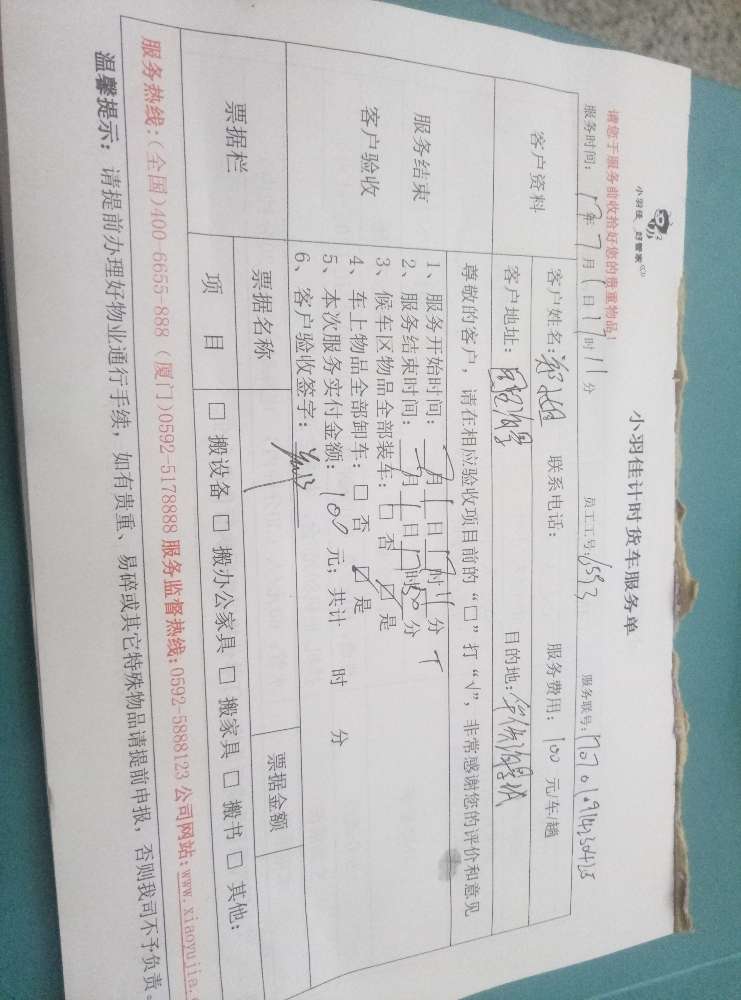 小羽佳 好管家
小羽佳计时货车服务单
请您于服务前收拾好您的贵重物品!
服务时间: 17年 7月 1日 17时 11分 员工工号: 6593 服务联号:
客户资料
客户姓名: 郑小姐 联系电话: 服务费用: 100 元/车/趟
客户地址: 目的地:
尊敬的客户,请在相应验收项目前的“□”打“√”,非常感谢您的评价和意见
服务结束
客户验收
1、服务开始时间: 7月1日17时11分
2、服务结束时间: 7月1日17时50分
3、候车区物品全部装车: □ 否 ☑ 是
4、车上物品全部卸车: □ 否 ☑ 是
5、本次服务实付金额: 100 元; 共计 时 分
6、客户验收签字:
票据栏
票据名称 票据金额
项 目 □ 搬设备 □ 搬办公家具 □ 搬家具 □ 搬书 □ 其他:
服务热线:(全国)400-6655-888 (厦门)0592-5178888 服务监督热线:0592-5888123 公司网站:www.xiaoyujia.
温馨提示: 请提前办理好物业通行手续,如有贵重、易碎或其它特殊物品请提前申报,否则我司不予负责。